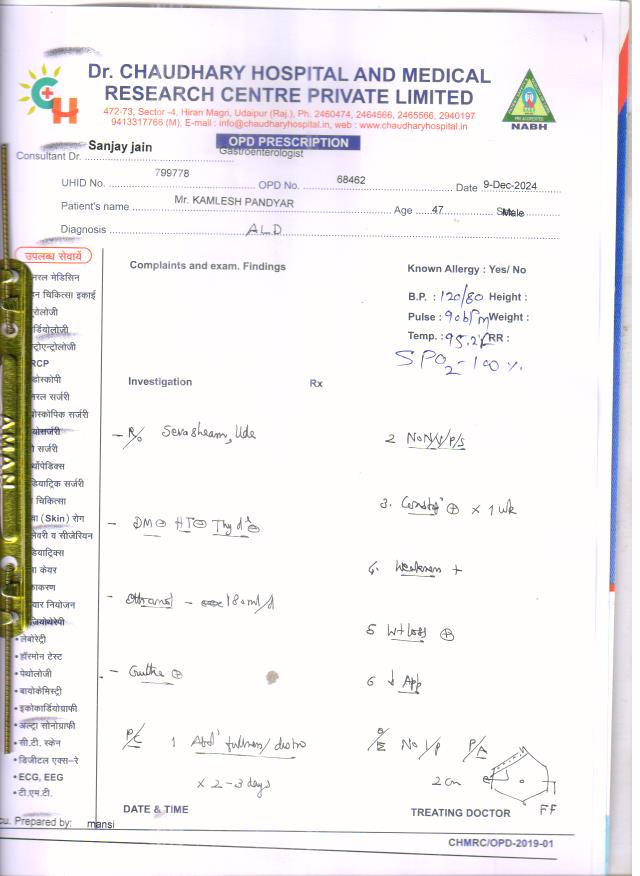 Dr. CHAUDHARY HOSPITAL AND MEDICAL
RESEARCH CENTRE PRIVATE LIMITED
472-73, Sector -4, Hiran Magri, Udaipur (Raj.), Ph. 2460474, 2464566, 2465566, 2940197
9413317766 (M), E-mail : info@chaudharyhospital.in, web : www.chaudharyhospital.in
NABH
OPD PRESCRIPTION
Consultant Dr. Sanjay jain Gastroenterologist
UHID No. 799778 OPD No. 68462 Date 9-Dec-2024
Patient's name Mr. KAMLESH PANDYAR Age 47 Male
Diagnosis ALD
उपलब्ध सेवायें
Complaints and exam. Findings
Known Allergy : Yes/ No
B.P. : 120/80 Height :
Pulse : 90b/m Weight :
Temp. : 95.2 RR :
SPO2 - 100 %
Investigation Rx
- R/o Sevashram, Ude
2 No N/V/P/S
3. Constipn ⊕ x 1 wk
- DM⊖ HT⊖ Thy d⊖
4. Weakness +
- Ethanol - 180ml/d
5 Wt loss ⊕
- Gutka ⊕
6 ↓ App
P/C 1 Abdl fullness/ distn
x 2-3 days
O/E No I/p P/A
2cm
FF
नरल मेडिसिन
न चिकित्सा इकाई
रोलोजी
र्डियोलोजी
ट्रोएन्ट्रोलोजी
RCP
डोस्कोपी
नरल सर्जरी
ोस्कोपिक सर्जरी
सर्जरी
र्थोपेडिक्स
डियाट्रिक सर्जरी
चिकित्सा
(Skin) रोग
लेवरी व सीजेरियन
डियाट्रिक्स
केयर
ाकरण
वार नियोजन
जियोथेरेपी
• लेबोरेट्री
• हॉरमोन टेस्ट
• पेथोलोजी
• बायोकेमिस्ट्री
• इकोकार्डियोग्राफी
• अल्ट्रा सोनोग्राफी
• सी.टी. स्केन
• डिजीटल एक्स-रे
• ECG, EEG
• टी.एम.टी.
AMAN
DATE & TIME
TREATING DOCTOR
Prepared by: mansi
CHMRC/OPD-2019-01